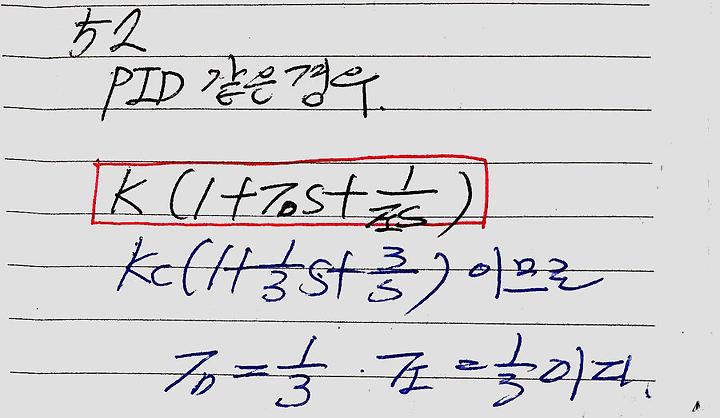 52
PID 같은경우.
K(1+T_D S+\frac{1}{T_I S})
Kc(1+\frac{1}{3}S+\frac{3}{S}) 이므로
T_D=\frac{1}{3} . T_I=\frac{1}{3}이다.